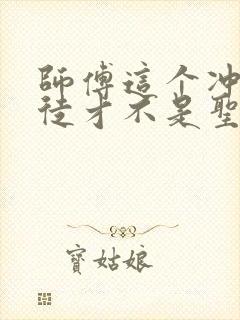 師傅這个冲
徒才不是聖
寶姑娘